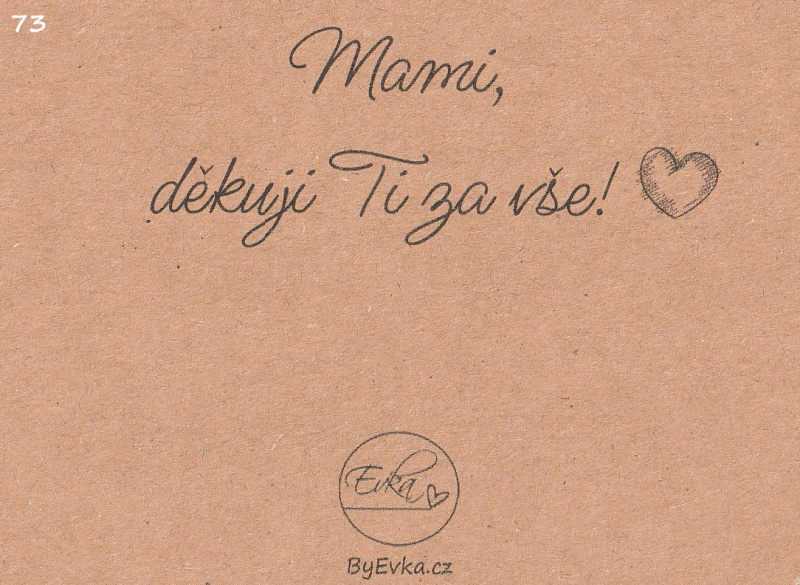 73
Mami,
děkuji Ti za vše!
Evka
ByEvka.cz